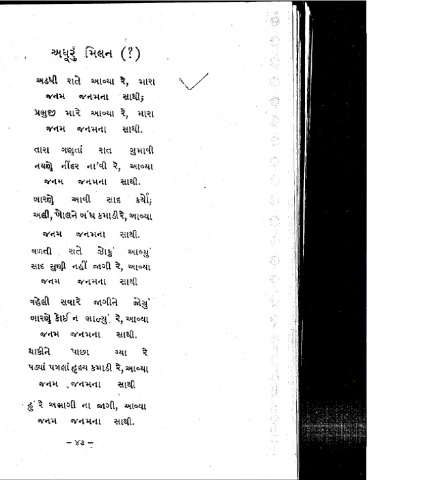 અધૂરું મિલન (?)
અડધી રાતે આવ્યા રે, મારા
જનમ જનમના સાથી;
પ્રભુજી મારે આવ્યા રે, મારા
જનમ જનમના સાથી.
તારા ગણતાં રાત ગુમાવી
નયણે નીંદર ના'વી રે, આવ્યા
જનમ જનમના સાથી.
બારણે આવી સાદ કર્યો;
અલી, ખોલને બંધ કમાડી રે, આવ્યા
જનમ જનમના સાથી.
વળતી રાતે ઝોકું આવ્યું
સાદ સુણી નહીં જાગી રે, આવ્યા
જનમ જનમના સાથી
વહેલી સવારે જાગીને જોયું
બારણે કોઈ ન ભાળ્યું રે, આવ્યા
જનમ જનમના સાથી.
થાકીને પાછા ગ્યા રે
પડ્યાં પગલાં હૃદય કમાડી રે, આવ્યા
જનમ જનમના સાથી
હું રે અભાગી ના જાગી, આવ્યા
જનમ જનમના સાથી.
– ૪૩ –